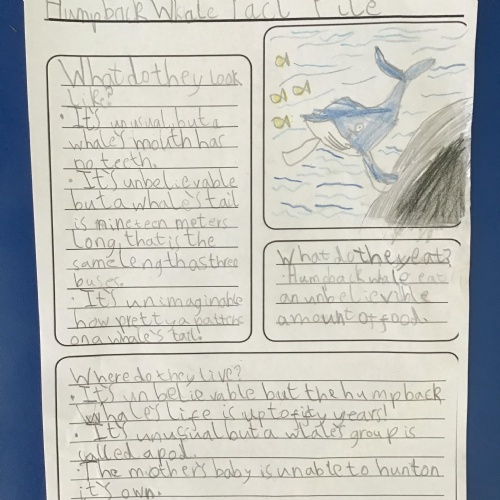 Humpback Whale Fact File
What do they look
like?
• It's unusual, but a
whale's mouth has
no teeth.
• It's unbelievable
but a whale's tail
is nineteen meters
long, that is the
same length as three
buses.
• It's unimaginable
how pretty a pattern
on a whale's tail!
What do they eat?
Humpback whale eat
an unbelievible
amount of food.
Where do they live?
• It's unbelievable but the humpback
whale's life is up to fifty years!
• It's unusual but a whale's group is
called a pod.
The mother's baby is unable to hunt on
it's own.